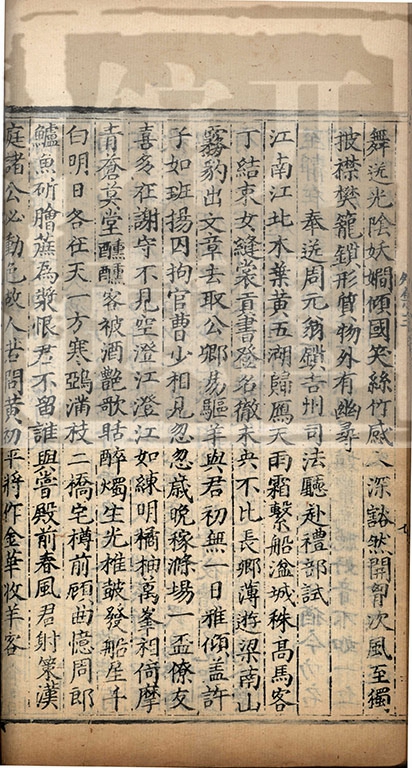 舞迷光陰妖嫺傾國笑絲竹感深豁然開胷次風至獨
披襟樊籠鎖形質物外有幽尋
奉送周元翁鎖吉州司法廳赴禮部試
江南江北木葉黃五湖歸鴈天雨霜繫船湓城秣高馬客
丁結束女縫裳貢書登名徹未央不比長卿薄遊梁南山
霧豹出文章去取公卿易驅羊與君初無一日雅傾蓋許
子如班揚囚拘官曹少相見忽忽歲晚稼滌場一盃僚友
喜多在謝守不見空澄江澄江如練明橘柚萬峯相倚摩
青蒼莫堂醺醺客被酒艷歌醉燭生光椎鼓發船星斗
白明日各在天一方寒鵶滿枝二橋宅樽前顧曲憶周郎
鱸魚斫膾蔗為漿恨君不留誰與嘗殿前春風君射策漢
庭諸公必動色故人若問黃初平將作金華牧羊客